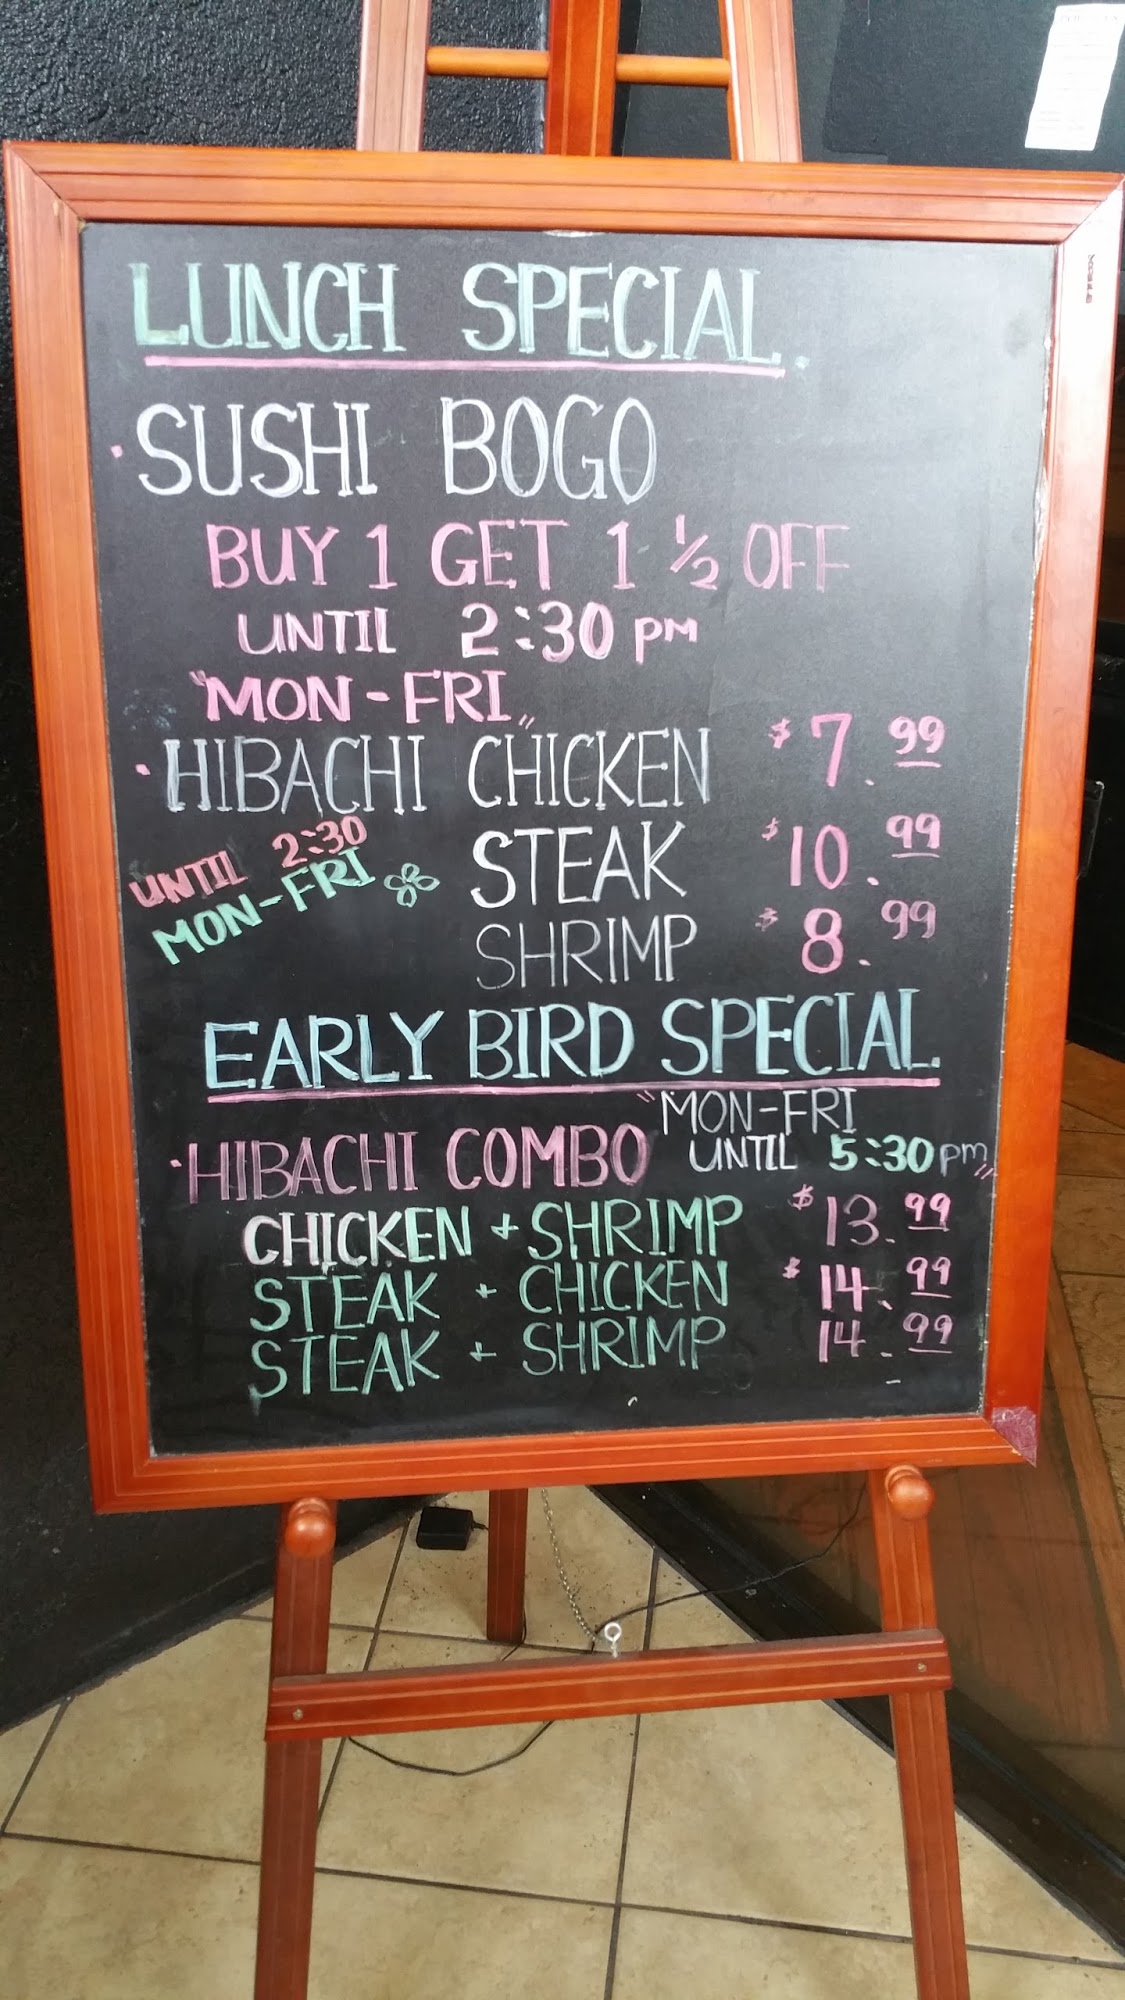 LUNCH SPECIAL.
· SUSHI BOGO
BUY 1 GET 1 ½ OFF
UNTIL 2:30 PM
"MON-FRI"
· HIBACHI CHICKEN $7.99
UNTIL 2:30
MON-FRI
STEAK $10.99
SHRIMP $8.99
EARLY BIRD SPECIAL
"MON-FRI
UNTIL 5:30 pm"
· HIBACHI COMBO
CHICKEN + SHRIMP $13.99
STEAK + CHICKEN $14.99
STEAK + SHRIMP 14.99